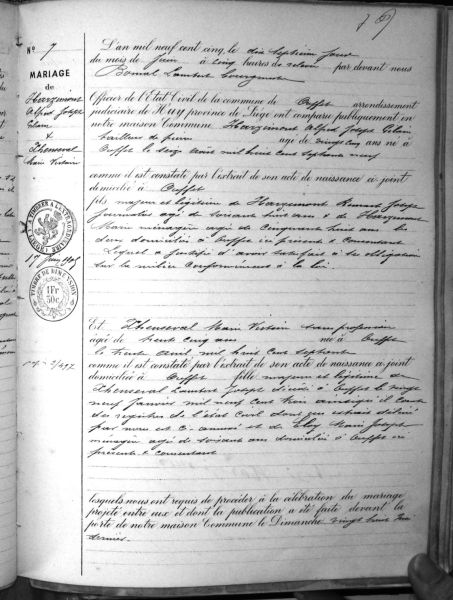 N° 7
MARIAGE
de
Harzimont
Alfred Joseph
Ghislain
&
Thonseval
Marie Victoire
17 juin 1905
TIMBRE DE DIMENSION
1Fr
50c
L'an mil neuf cent cinq, le dix septième jour
du mois de Juin à cinq heures de relevée par devant nous
Bonnal Laurent Bourgmestre
Officier de l'Etat Civil de la commune de Ouffet arrondissement
judiciaire de Huy province de Liège ont comparu publiquement en
notre maison Commune Harzimont Alfred Joseph Ghislain
âgé de vingt cinq ans né à
Ouffet le seize août mil huit cent septante neuf
comme il est constaté par l'extrait de son acte de naissance ci-joint
domicilié à Ouffet
fils majeur et légitime de Harzimont Joseph
Journalier âgé de soixante huit ans & de
Marie ménagère âgée de cinquante huit ans
domiciliés à Ouffet ci présents & consentant
Lequel a justifié d'avoir satisfait à ses obligations
sur la milice conformément à la loi.
Et Thonseval Marie Victoire sans profession
âgée de trente cinq ans née à Ouffet
le trente avril mil huit cent septante
comme il est constaté par l'extrait de son acte de naissance ci-joint
domiciliée à Ouffet fille majeure et légitime de
Thonseval Laurent Joseph décédé à Ouffet le vingt
neuf janvier mil neuf cent trois ainsi qu'il conste
des registres de l'état civil dont un extrait délivré
par nous est ci-annexé et de Marie Joseph
ménagère âgée de soixante ans domiciliée à Ouffet ci
présente & consentant
lesquels nous ont requis de procéder à la célébration du mariage
projeté entre eux et dont la publication a été faite devant la
porte de notre maison Commune le Dimanche vingt huit mai
dernier.